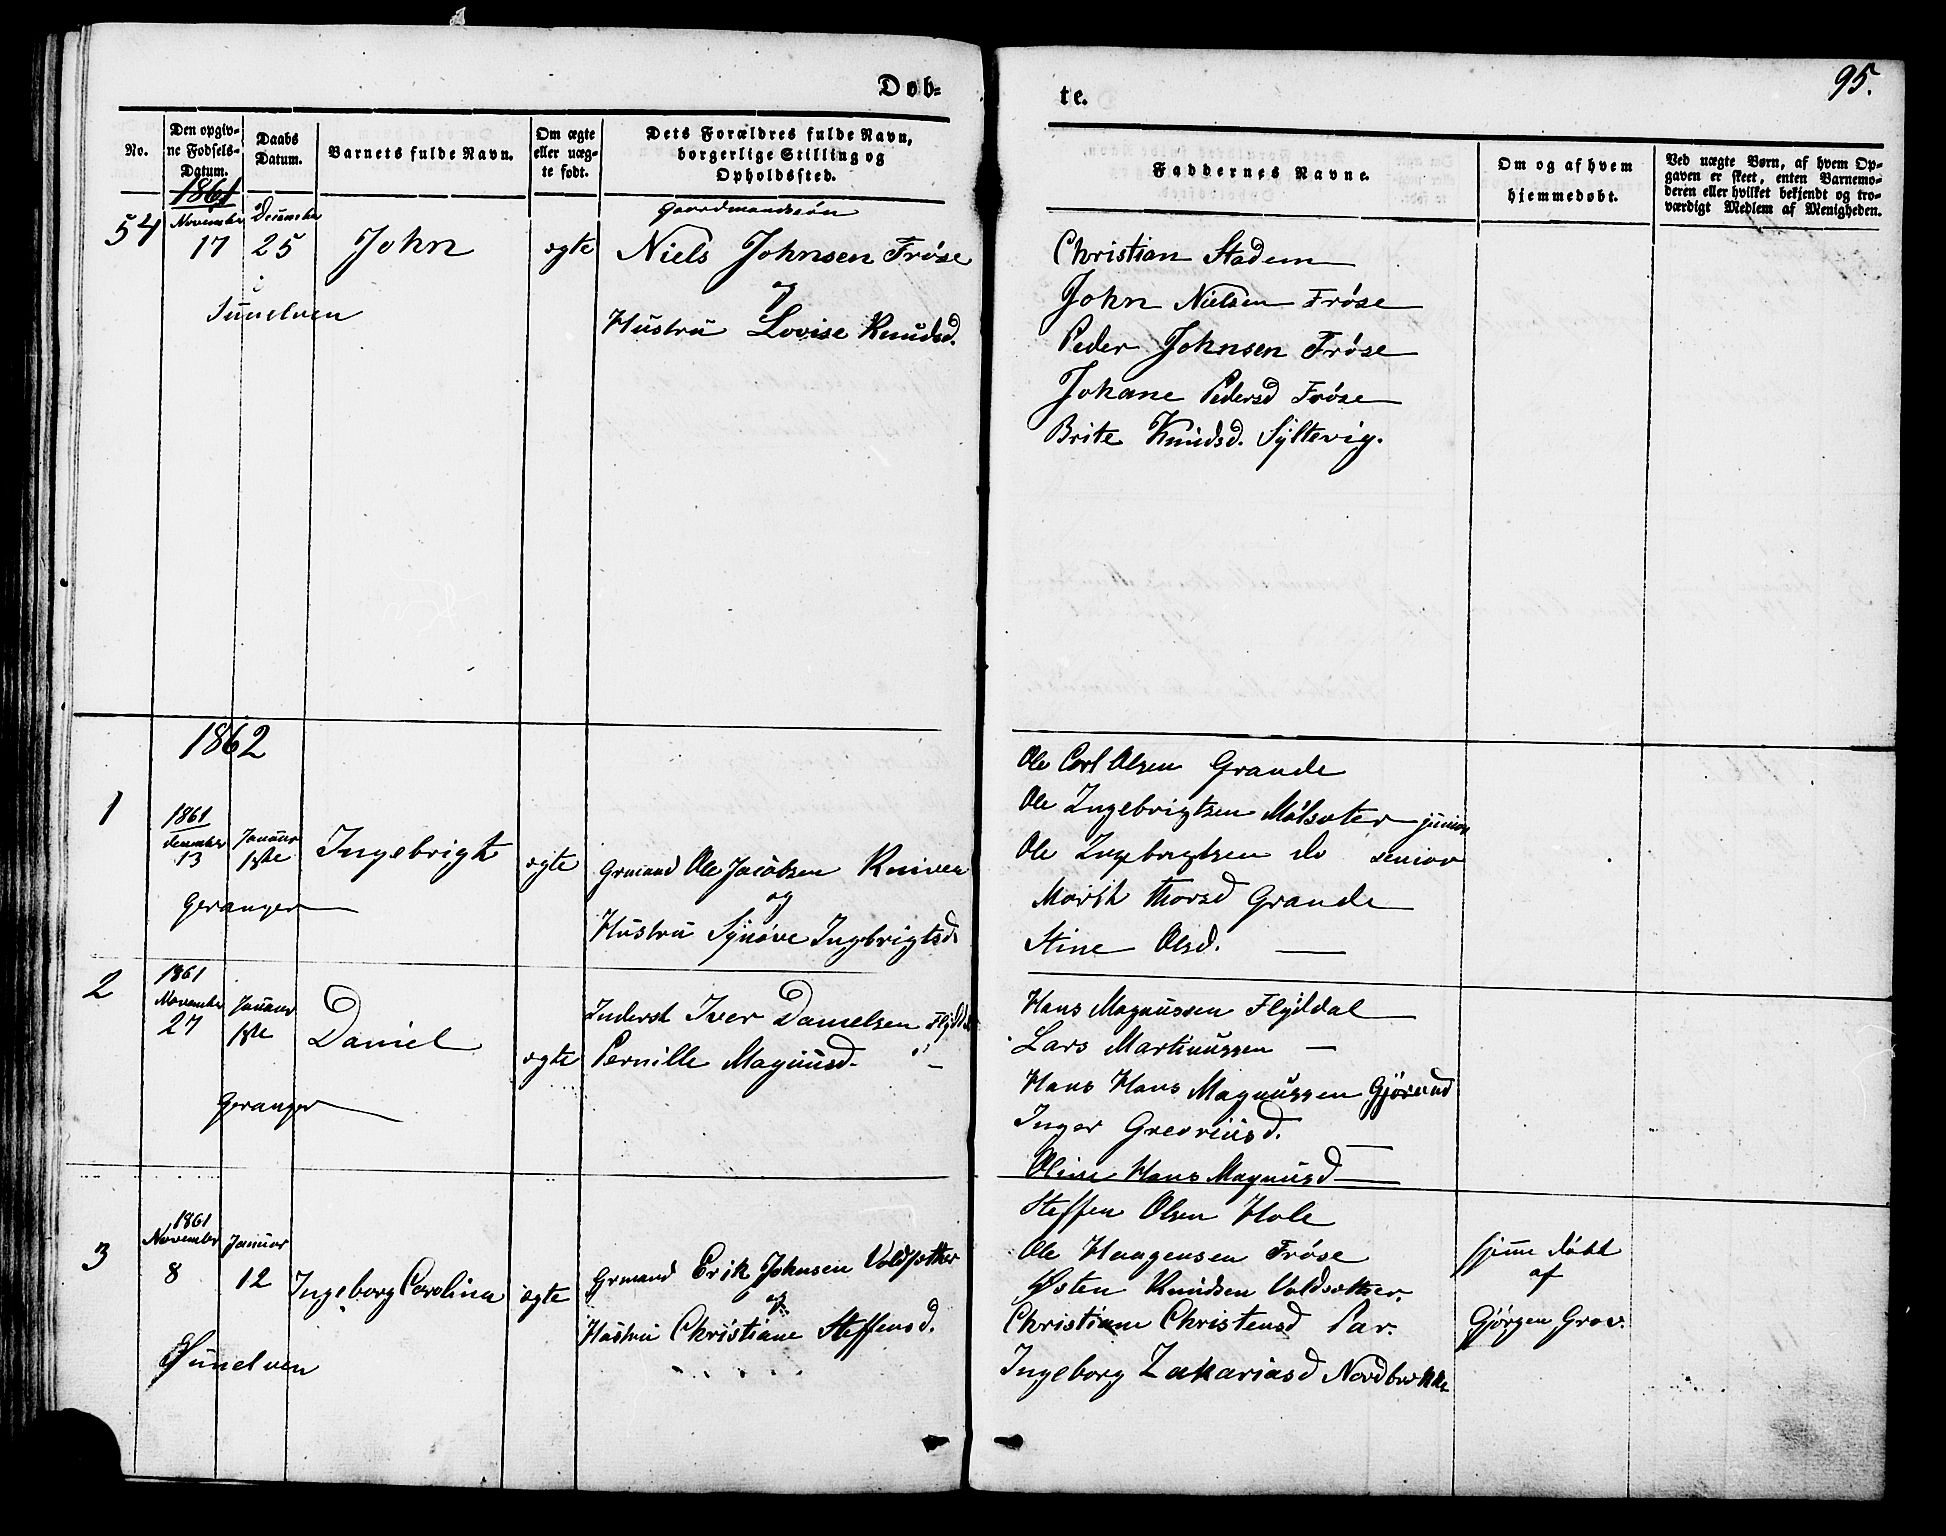 Dob-
te.
95.
No.
Den opgiv-
ne Fodsels-
Datum.
Daabs
Datum.
Barnets fulde Navn.
Om ægte
eller uæg-
te født.
Dets Forældres fulde Navn,
borgerlige Stilling og
Opholdssted.
Faddernes Navne.
Om og af hvem
hjemmedøbt.
Ved uægte Børn, af hvem Op-
gaven er skeet, enten Barnemo-
deren eller hvilket bekjendt og tro-
værdigt Medlem af Menigheden.
1861
54
November
17
December
25
John
ægte
Gaardmandssøn
Niels Johnsen Frøse
og
Hustru Lovise Knudsd.
Sunelven
Christian Stadem
John Nielsen Frøse
Peder Johnsen Frøse
Johane Pedersd Frøse
Brite Knudsd. Syltevig.
1862
1
1861
December
13
Januar
1ste
Ingebrigt
ægte
Grmand Ole Jacobsen Kniven
og
Hustru Synøve Ingbrigtsd
Geranger
Ole Carl Olsen Grande
Ole Ingebrigtsen Mølsæter junior
Ole Ingebrigtsen do senior
Marit Thorsd Grande
Stine Olsd. —
2
1861
November
27
Januar
1ste
Daniel
ægte
Inderst Iver Danielsen Flydal
Pernille Magnusd. " —
Geranger
Hans Magnussen Flydal
Lars Martinussen —
Hans Hans Magnussen Gjørund
Inger Greoriusd. —
Oline Hans Magnusd —
3
1861
November
8
Januar
12
Ingeborg Carolina
ægte
Grmand Erik Johnsen Voldsætter
og
Hustru Christiane Steffensd.
Sunelven
Steffen Olsen Hole
Ole Haagensen Frøse
Østen Knudsen Voldsætter.
Christiane Christensd Par.
Ingeborg Zakariasd
hjeme døbt
af
Gjørgen Grov.